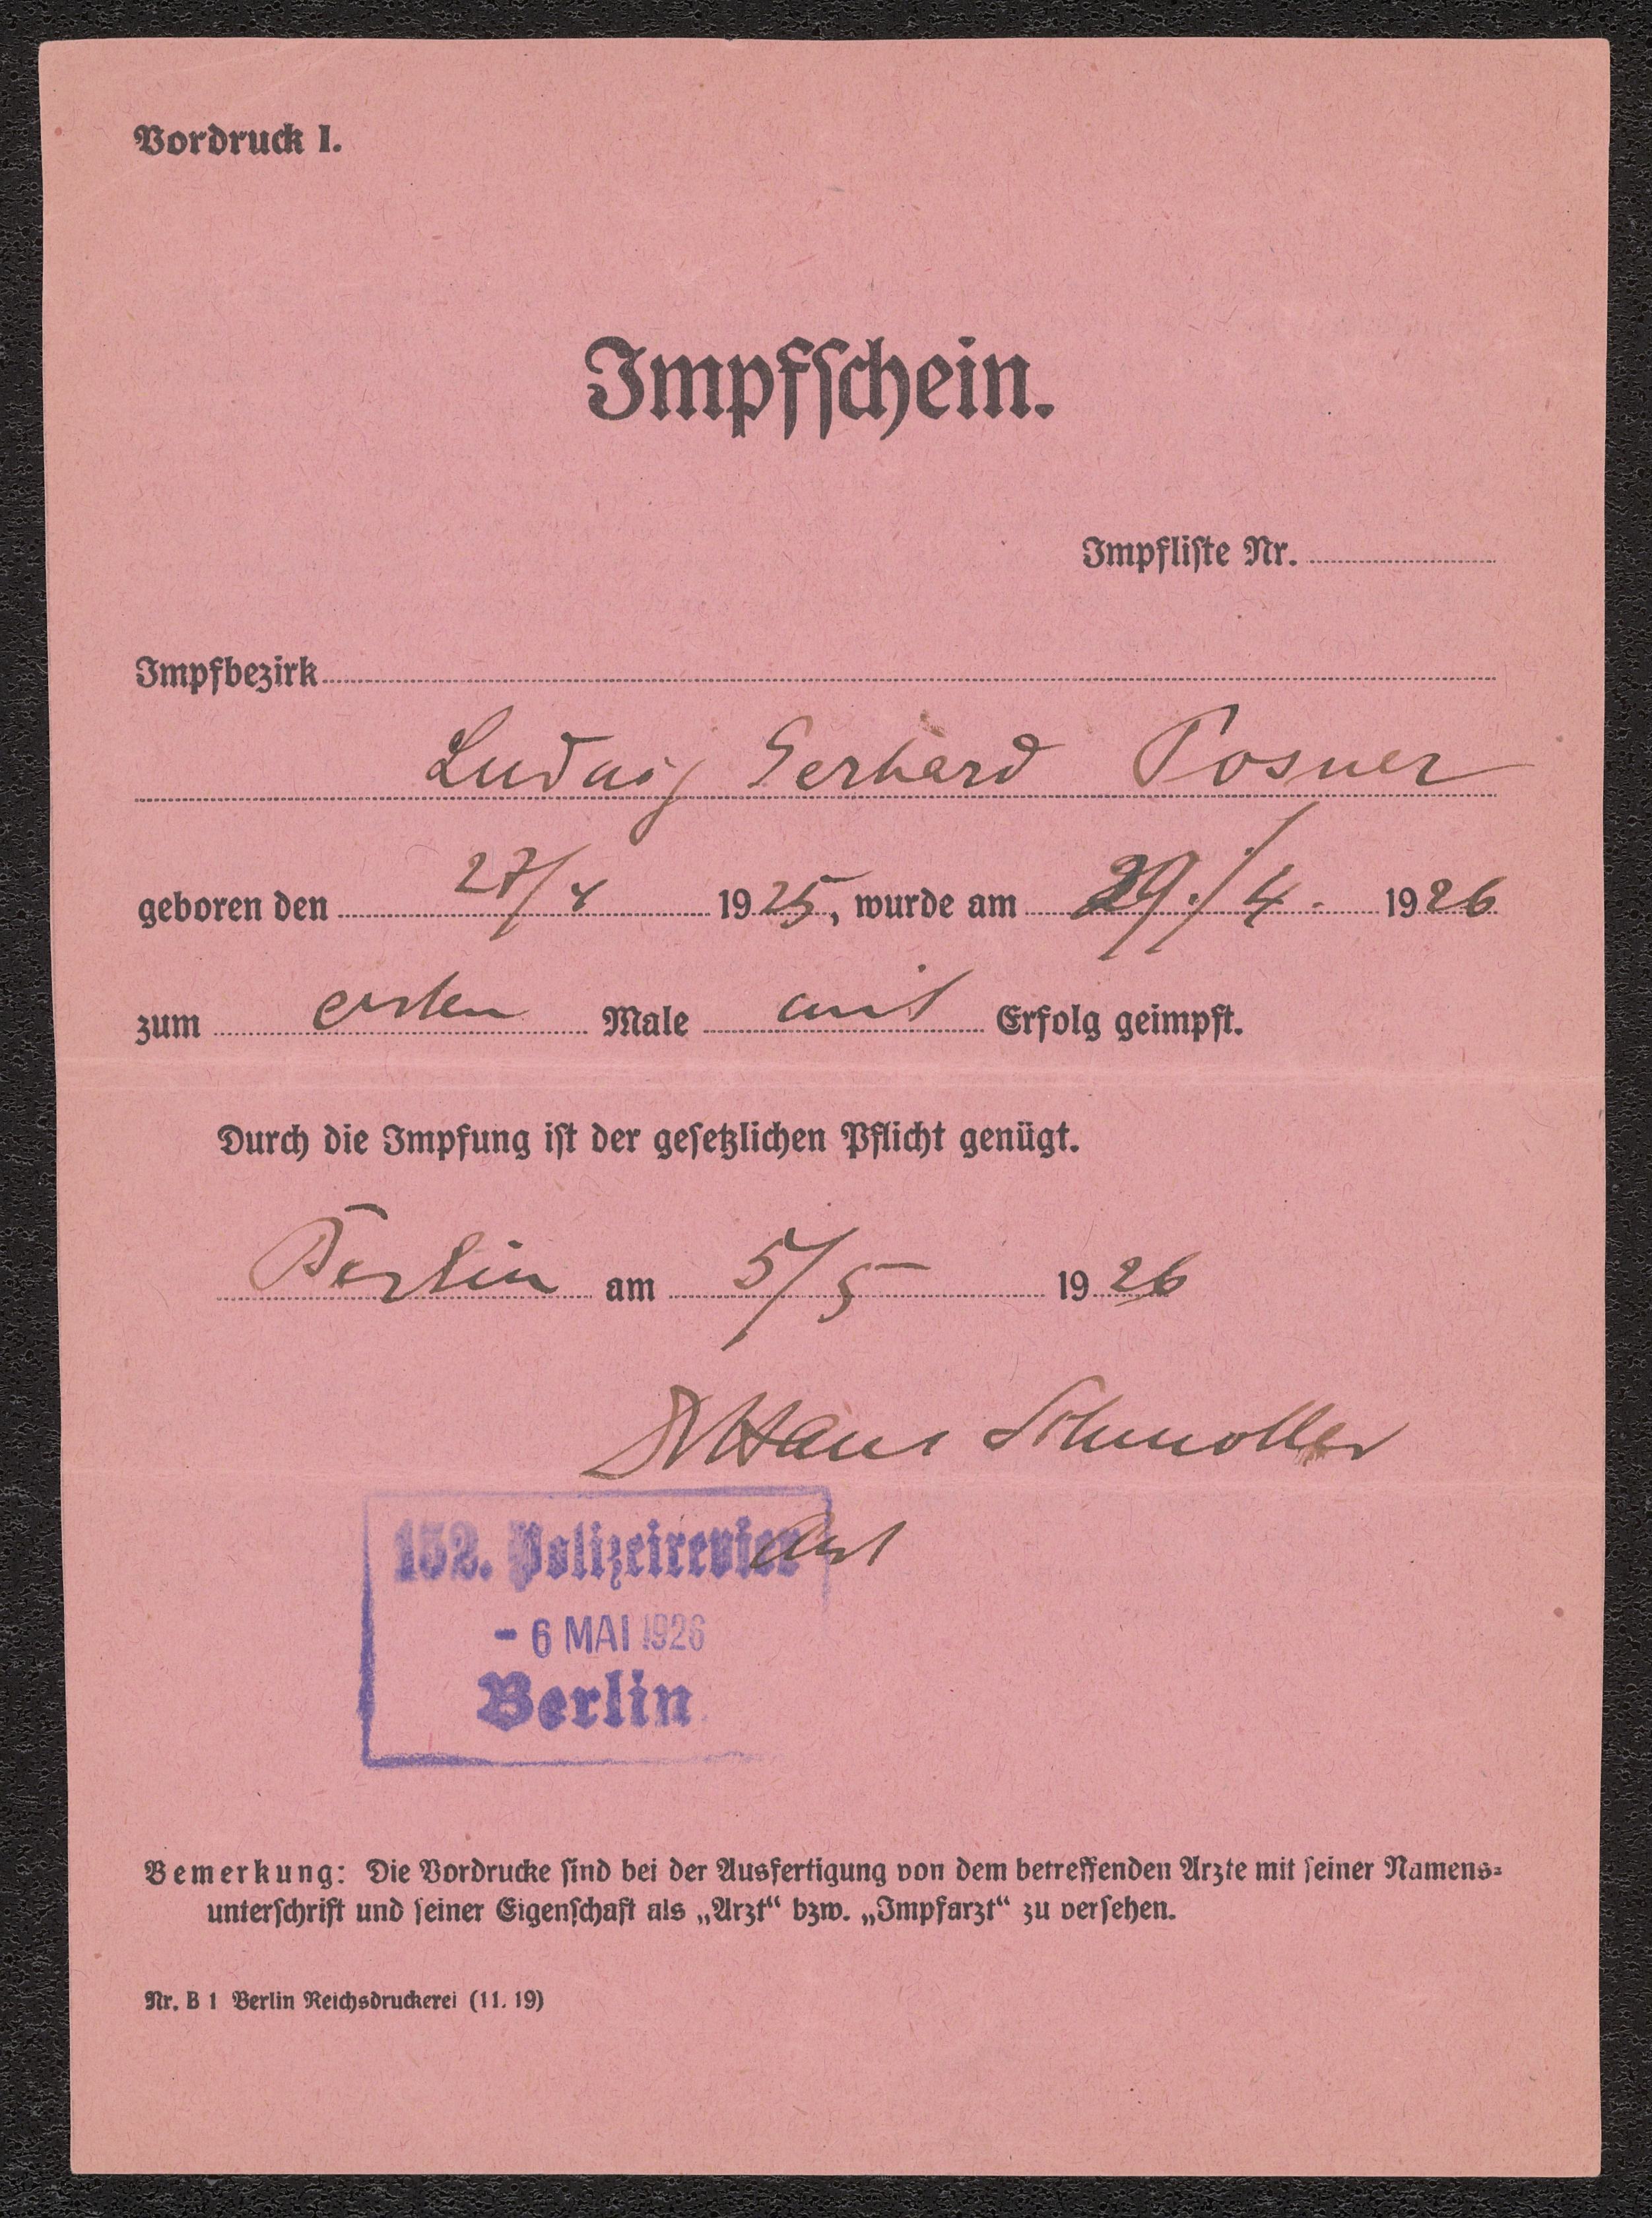 Vordruck I.
Impfschein.
Impfliste Nr.
Impfbezirk
Ludwig Gerhard Posner
geboren den 27/4 1925, wurde am 29./4. 1926
zum ersten Male mit Erfolg geimpft.
Durch die Impfung ist der gesetzlichen Pflicht genügt.
Berlin am 5/5 1926
Dr Hans Schmoller
Arzt
152. Polizeirevier
- 6 MAI 1926
Berlin
Bemerkung: Die Vordrucke sind bei der Ausfertigung von dem betreffenden Arzte mit seiner Namens-
unterschrift und seiner Eigenschaft als „Arzt“ bzw. „Impfarzt“ zu versehen.
Nr. B 1 Berlin Reichsdruckerei (11. 19)